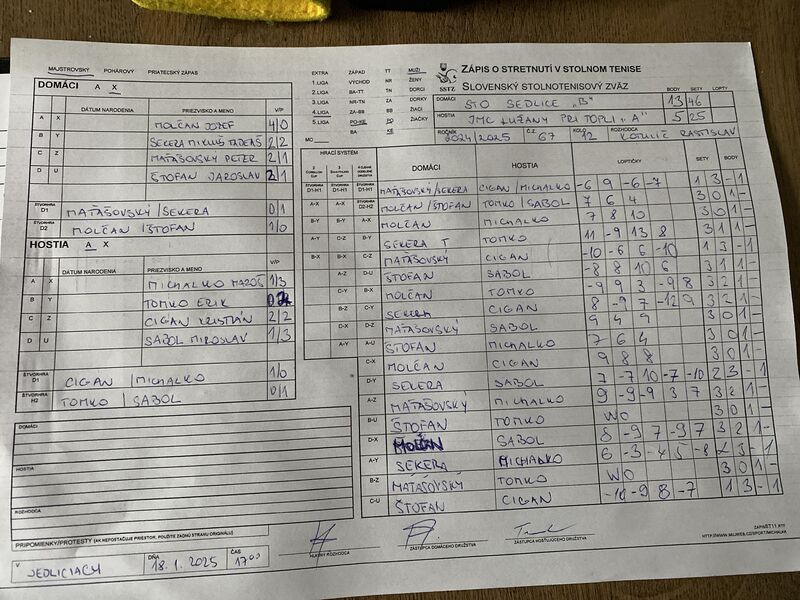 MAJSTROVSKÝ POHÁROVÝ PRIATEĽSKÝ ZÁPAS
DOMÁCI A X
DÁTUM NARODENIA PRIEZVISKO A MENO V/P
A X MOLČAN JOZEF 4/0
B Y SEKERA MIKULÁŠ TADEÁŠ 2/2
C Z MAŤAŠOVSKÝ PETER 2/1
D U ŠTOFAN JAROSLAV 2/1
ŠTVORHRA D1 MAŤAŠOVSKÝ / SEKERA 0/1
ŠTVORHRA D2 MOLČAN / ŠTOFAN 1/0
HOSTIA A X
DÁTUM NARODENIA PRIEZVISKO A MENO V/P
A X MICHALKO MAROŠ 1/3
B Y TOMKO ERIK
C Z CIGAN KRISTIÁN 2/2
D U SABOL MIROSLAV 1/3
ŠTVORHRA D1 CIGAN / MICHALKO 1/0
ŠTVORHRA H2 TOMKO / SABOL 0/1
DOMÁCI
HOSTIA
ROZHODCA
PRIPOMIENKY/PROTESTY (AK NEPOSTAČUJE PRIESTOR, POUŽITE ZADNÚ STRANU ORIGINÁLU)
V JEDLICIACH DŇA 18.1.2025 ČAS 17 00
EXTRA ZÁPAD TT MUŽI
1.LIGA VÝCHOD NR ŽENY
2.LIGA BA-TT TN DORCI
3.LIGA NR-TN ZA DORKY
4.LIGA ZA-BB BB ŽIACI
5.LIGA PO-KE PO ŽIAČKY
MC BA KE
SSTZ
ZÁPIS O STRETNUTÍ V STOLNOM TENISE
SLOVENSKÝ STOLNOTENISOVÝ ZVÄZ
BODY SETY LOPTY
DOMÁCI STO SEDLICE „B" 13 46
HOSTIA JMC LUŽANY PRI TOPLI „A" 5 25
ROČNÍK 2024/2025 Č.Z. 67 KOLO 12 ROZHODCA KOTULIČ RASTISLAV
HRACÍ SYSTÉM DOMÁCI HOSTIA LOPTIČKY SETY BODY
ŠTVORHRA D1-H1 ŠTVORHRA D1-H1 ŠTVORHRA D1-H1 MAŤAŠOVSKÝ/SEKERA CIGAN/MICHALKO -6 9 -6 -7 1 3 - 1
A-X A-X ŠTVORHRA D2-H2 MOLČAN/ŠTOFAN TOMKO/SABOL 7 6 4 3 0 1 -
B-Y B-Y A-X MOLČAN MICHALKO 7 8 10 3 0 1 -
A-Y C-Z B-Y SEKERA T TOMKO 11 -9 13 8 3 1 1 -
B-X B-X C-Z MAŤAŠOVSKÝ CIGAN -10 -6 6 -10 1 3 - 1
A-Z D-U ŠTOFAN SABOL -8 8 10 6 3 1 1 -
C-Y B-X MOLČAN TOMKO -9 9 3 -9 8 3 2 1 -
B-Z C-Y SEKERA CIGAN 8 -9 7 -12 9 3 2 1 -
D-X D-Z MAŤAŠOVSKÝ SABOL 9 4 9 3 0 1 -
A-Y A-U ŠTOFAN MICHALKO 7 6 4 3 0 1 -
C-X MOLČAN CIGAN 9 8 8 3 0 1 -
D-Y SEKERA SABOL 7 -7 10 -7 -10 2 3 - 1
A-Z MAŤAŠOVSKÝ MICHALKO 9 -9 -9 3 7 3 2 1 -
B-U ŠTOFAN TOMKO WO 3 0 1 -
D-X MOLČAN SABOL 8 -9 7 -9 7 3 2 1 -
A-Y SEKERA MICHALKO 6 -3 -4 5 -8 2 3 - 1
B-Z MAŤAŠOVSKÝ TOMKO WO 3 0 1 -
C-U ŠTOFAN CIGAN -10 -9 8 -7 1 3 - 1
HLAVNÝ ROZHODCA ZÁSTUPCA DOMÁCEHO DRUŽSTVA ZÁSTUPCA HOSŤUJÚCEHO DRUŽSTVA